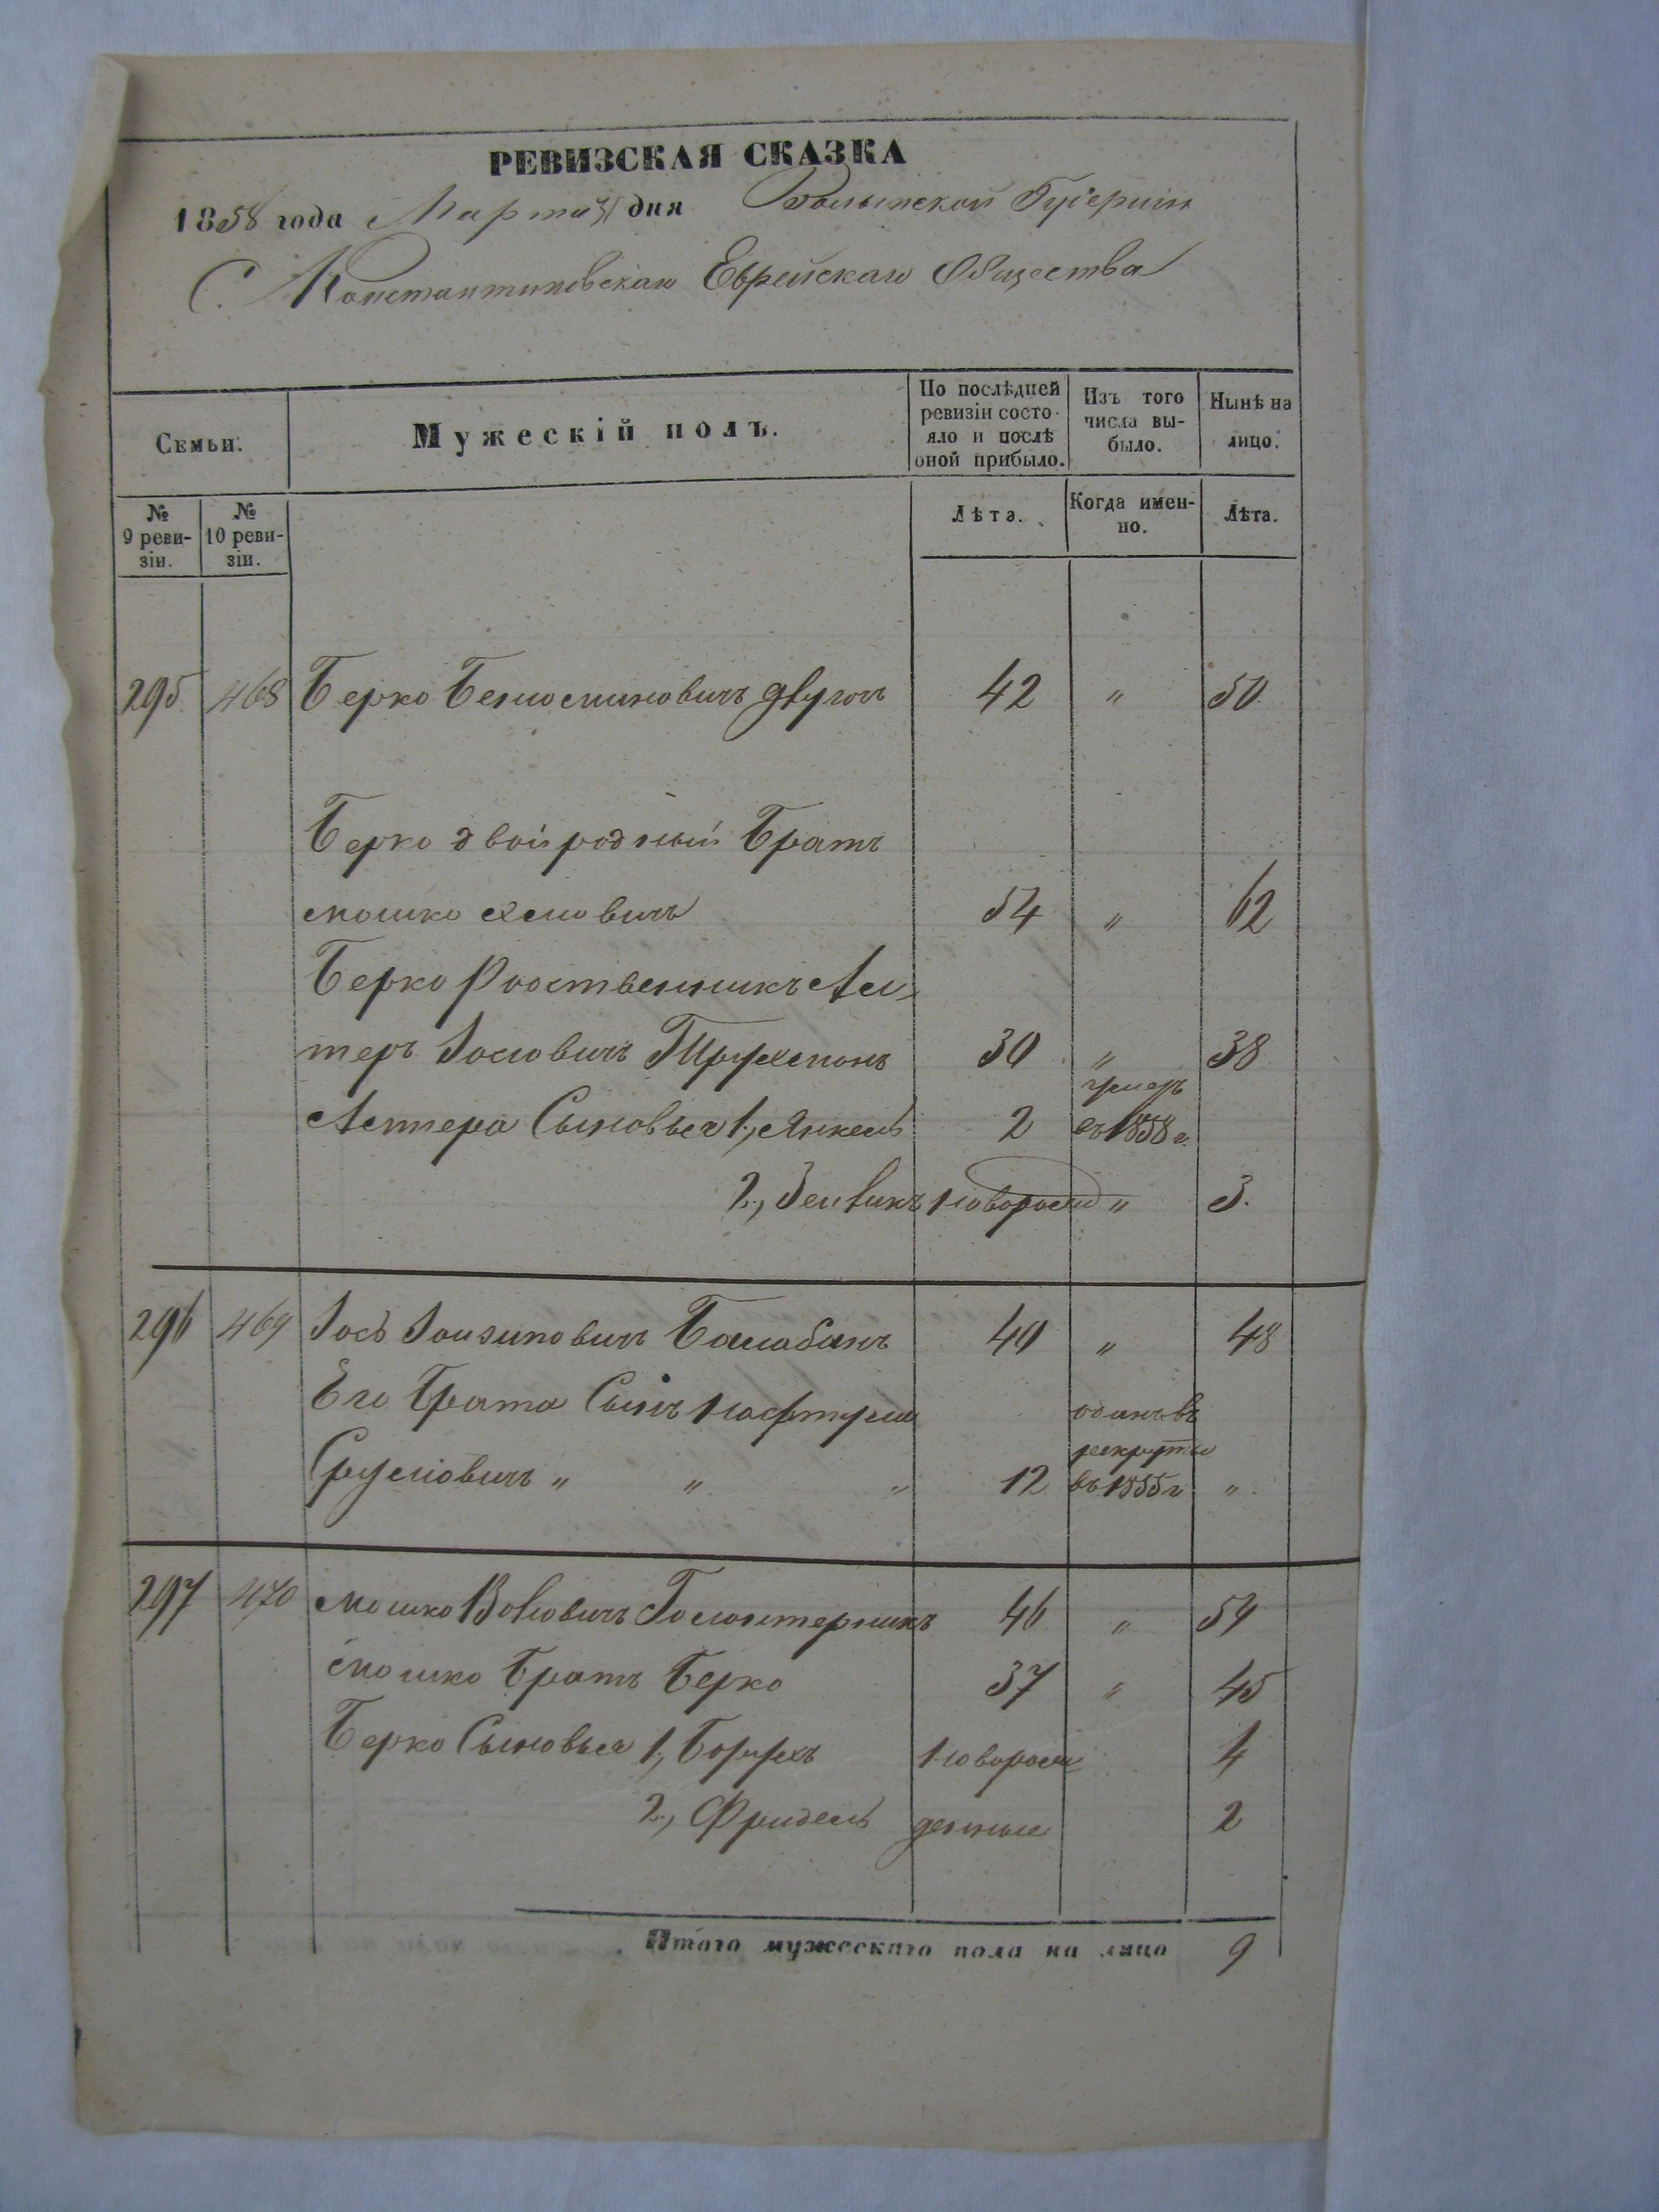 РЕВИЗСКАЯ СКАЗКА
1858 года Марта 31 дня Волынской Губерніи
С. Константиновскаго Еврейскаго Общества
Семьи.
Мужескій полъ.
По послѣдней ревизіи состояло и послѣ оной прибыло.
Изъ того числа выбыло.
Нынѣ на лицо.
№ 9 ревизіи.
№ 10 ревизіи.
Лѣта.
Когда именно.
Лѣта.
295 468 Берко 42 " 50
Берко двоіродный Братъ
Мошко 54 " 62
Берко Родственникъ Ал-
теръ Іосіовичъ 30 " 38
Алтера Сыновья 1, Янкель 2 умеръ въ 1858 г.
2, Зелвикъ новорожд " 3.
296 469 Іось Балабанъ 40 " 48
Его Брата Сынъ Нафтула
Сруліовичъ " " " 12 отданъ въ рекруты въ 1855 г. "
297 470 Мошко Вольовичъ 46 " 54
Мошко Братъ Берко 37 " 45
Берко Сыновья 1, Борухъ новорож 4
2, Фридель денные 2
Итого мужескаго пола на лицо 9